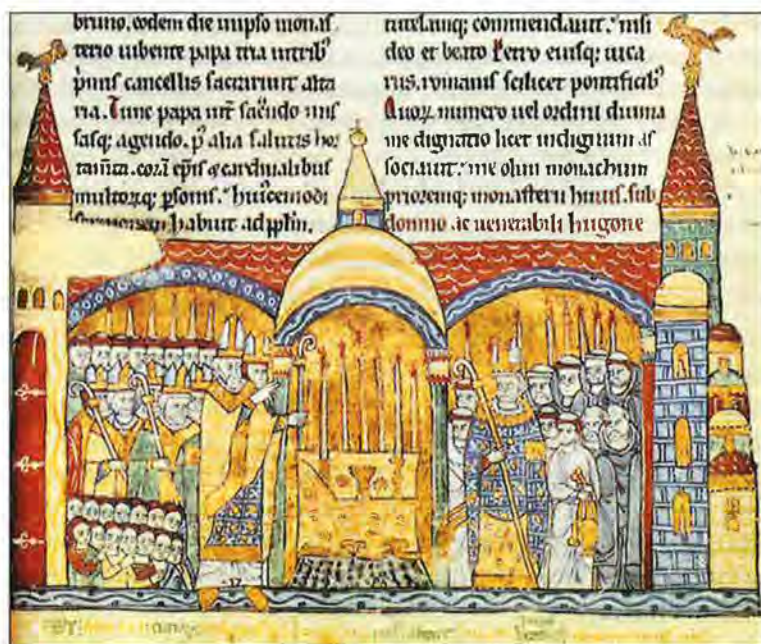 bruno. eodem die in ipso monas
terio iubente papa tria in trib
primis cancellis sacrarunt alta
ria. Tunc papa int sac̄endo mis
sasq; agendo. p̄ alia salutis hor
tam̄ta. corā ep̄is & cardinalibus
multorq; psonis. huiᶜcemodi
sermonem habuit ad pplm.
tutelamq; commendauit. nisi
deo et beato Petro eiusq; uica
riis. romanis scilicet pontificib
Quorꝝ numero uel ordini diuina
me dignatio licet indignum as
sociauit. me olim monachum
prioremq; monasterii huius. sub
domno ac uenerabili hugone